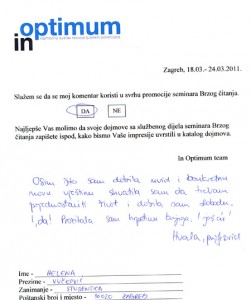 in optimum
Zagreb, 18.03.- 24.03.2011.
Slažem se da se moj komentar koristi u svrhu promocije seminara Brzog čitanja.
DA NE
Najljepše Vas molimo da svoje dojmove sa službenog dijela seminara Brzog
čitanja zapišete ispod, kako bismo Vaše impresije uvrstili u katalog dojmova.
in Optimum team
Osim što sam dobila uvid i konkretnu
novu vještinu shvatila sam da trebam
pojednostaviti život i dobila sam slobodu.
I, da! Pročitala sam hrpetinu knjiga! još
Hvala,
Ime - HELENA
Prezime -
Zanimanje - STUDENTICA
Poštanski broj i mjesto - ZAGREB